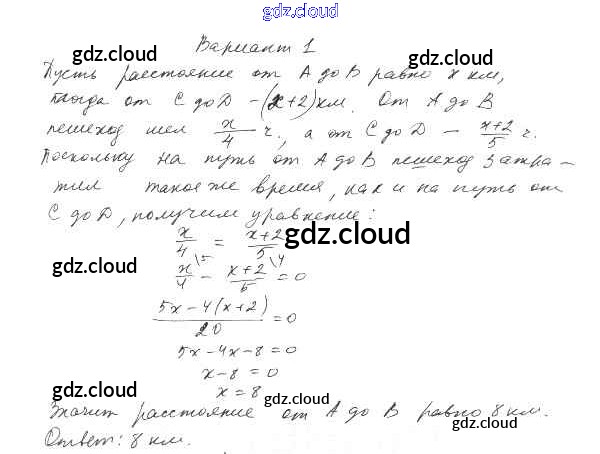 gdz.cloud
Вариант 1
gdz.cloud gdz.cloud
Пусть расстояние от A до B равно x км,
тогда от C до D – (x+2) км. От A до B
пешеход шел x/4 ч., а от C до D – x+2/5 ч.
Поскольку на путь от A до B пешеход затра-
тил такое же время, как и на путь от
C до D, получим уравнение:
x/4 = x+2/5
gdz.cloud gdz.cloud
x/4 \5 – x+2/5 \4 = 0
5x – 4(x+2)/20 = 0
5x – 4x – 8 = 0
x – 8 = 0
x = 8
gdz.cloud gdz.cloud
Значит расстояние от A до B равно 8 км.
Ответ: 8 км.
gdz.cloud gdz.cloud